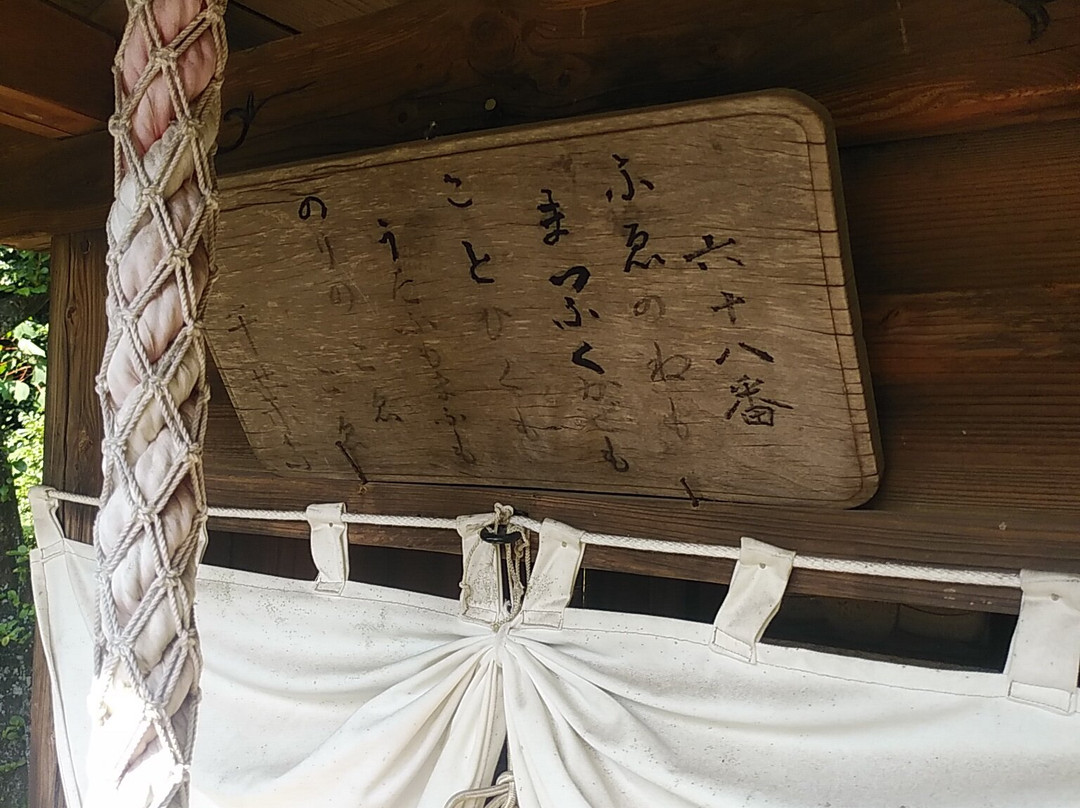 六十八番
ふゑのねも
まつふくかぜも
ことひくも
うたふもまふも
のりのこゑ